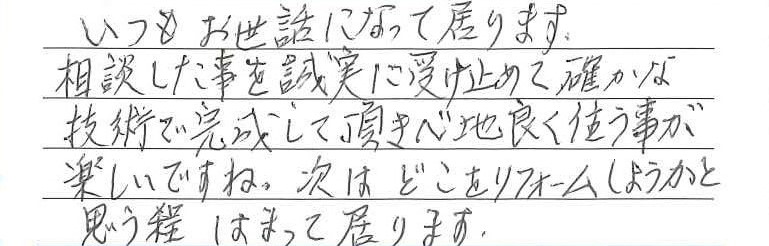 いつも お世話になって居ります.
相談した事を誠実に受け止めて確かな
技術で完成して頂き心地良く住う事が
楽しいですね。次は どこをリフォームしようかと
思う程 はまって居ります.